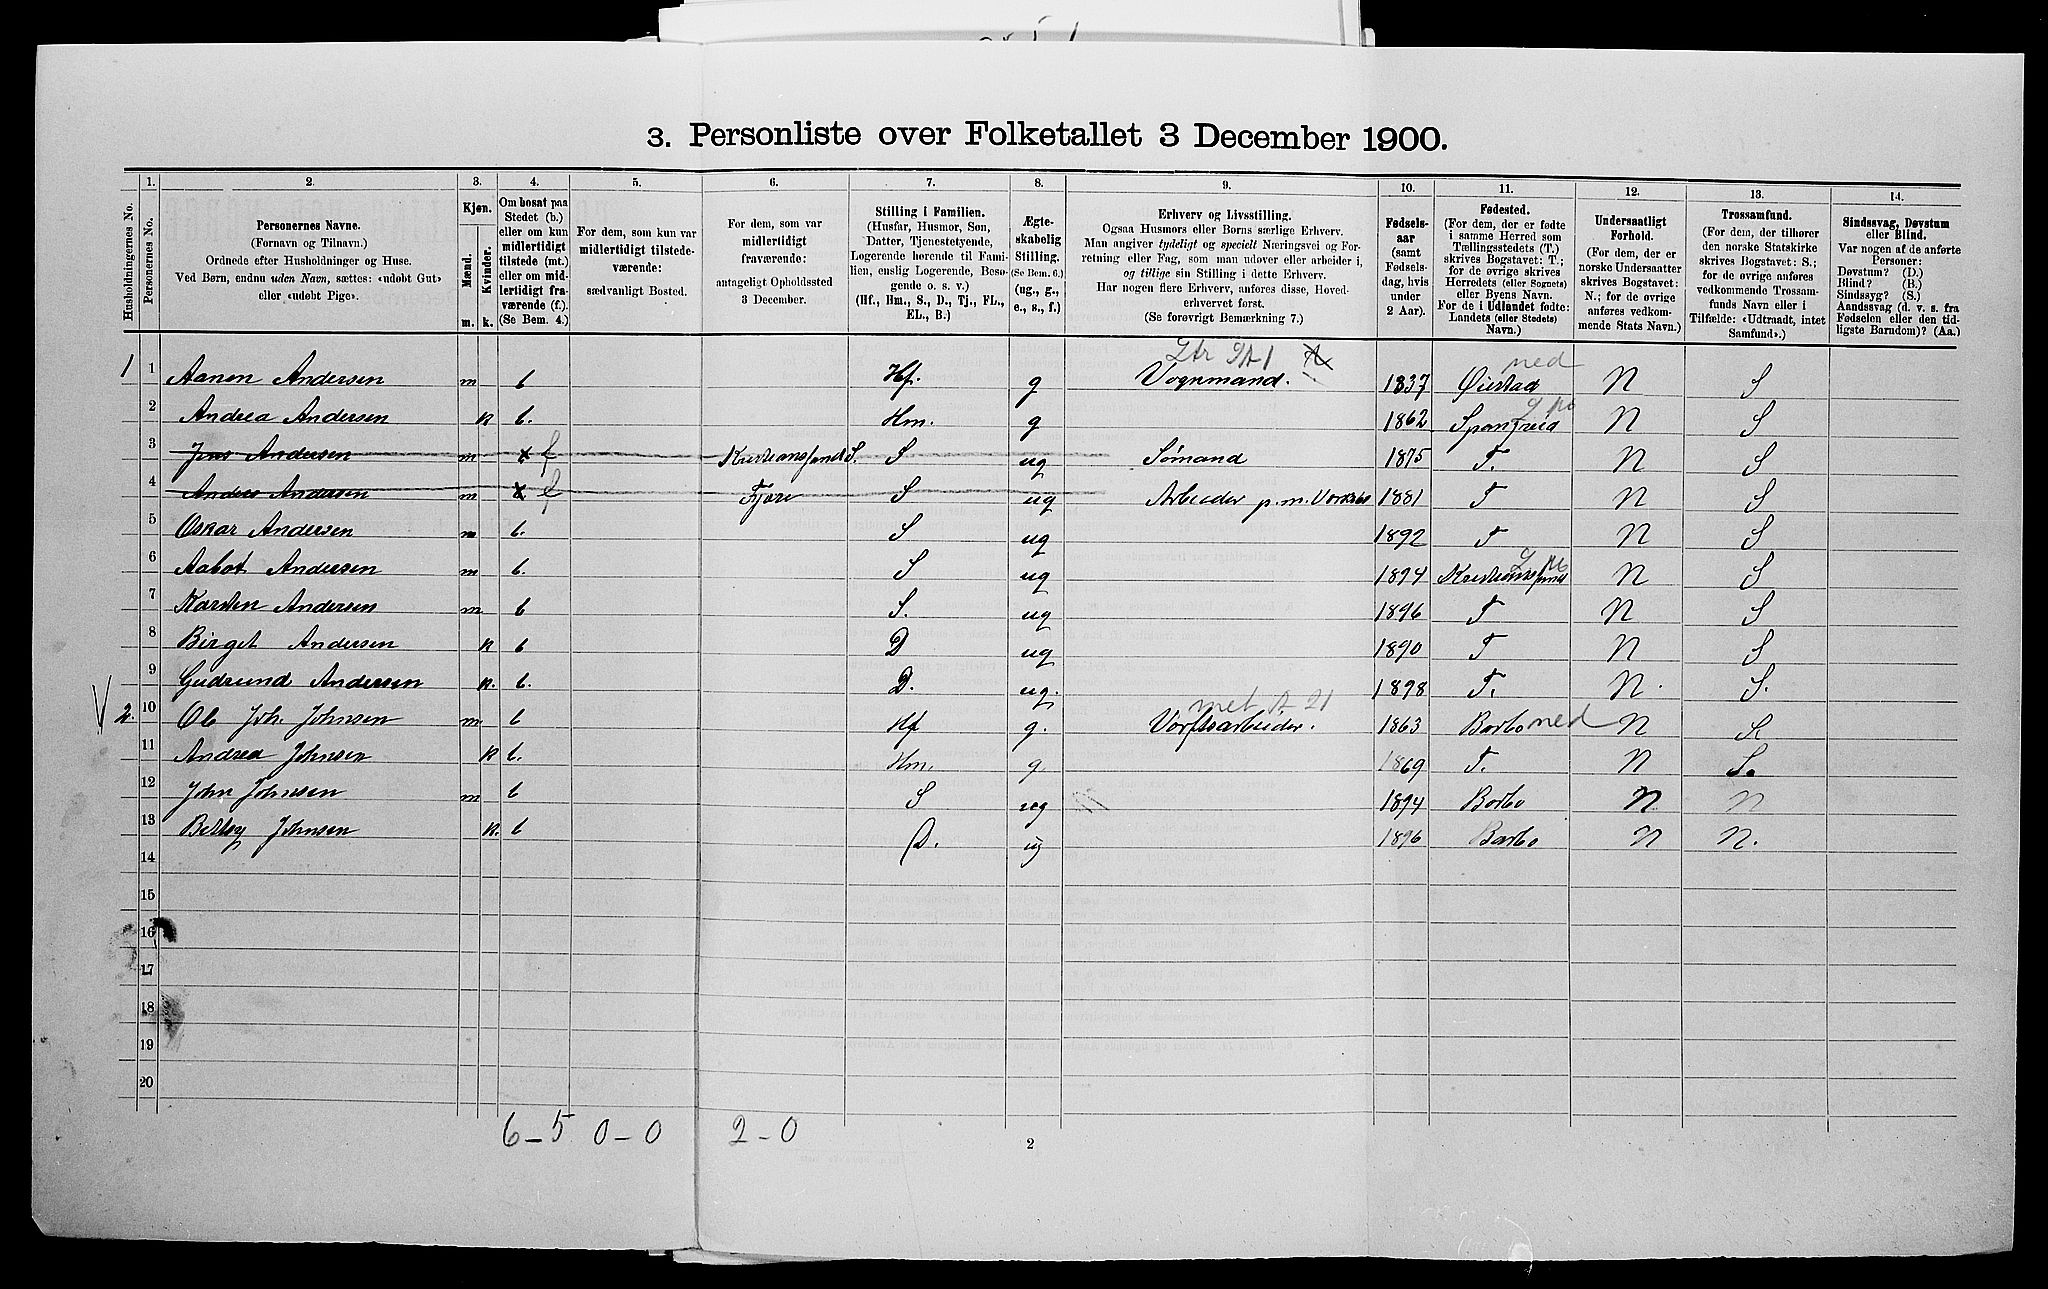 3. Personliste over Folketallet 3 December 1900.
Husholdningernes No.
1. Personernes No.
2. Personernes Navne. (Fornavn og Tilnavn.) Ordnede efter Husholdninger og Huse. Ved Børn, endnu uden Navn, sættes: «udøbt Gut» eller «udøbt Pige».
3. Kjøn. Mænd. m. Kvinder. k.
4. Om bosat paa Stedet (b.) eller om kun midlertidigt tilstede (mt.) eller om midlertidigt fraværende (f.). (Se Bem. 4.)
5. For dem, som kun var midlertidigt tilstedeværende: sædvanligt Bosted.
6. For dem, som var midlertidigt fraværende: antageligt Opholdssted 3 December.
7. Stilling i Familien. (Husfar, Husmor, Søn, Datter, Tjenestetyende, Logerende hørende til Familien, enslig Logerende, Besøgende o. s. v.) (Hf., Hm., S., D., Tj., FL., EL., B.)
8. Ægteskabelig Stilling. (Se Bem. 6.) (ug., g., e., s., f.)
9. Erhverv og Livsstilling. Ogsaa Husmors eller Børns særlige Erhverv. Man angiver tydeligt og specielt Næringsvei og Forretning eller Fag, som man udover eller arbeider i, og tillige sin Stilling i dette Erhverv. Har nogen flere Erhverv, anføres disse, Hovederhvervet først. (Se forøvrigt Bemærkning 7.)
10. Fødselsaar (samt Fødselsdag, hvis under 2 Aar).
11. Fødested. (For dem, der er fødte i samme Herred som Tællingsstedets (T.) skrives Bogstavet: T.; for de øvrige skrives Herredets (eller Sognets) eller Byens Navn. For de i Udlandet fødte: Landets (eller Stedets) Navn.)
12. Undersaatligt Forhold. (For dem, der er norske Undersaatter skrives Bogstavet: N.; for de øvrige anføres vedkommende Stats Navn.)
13. Trossamfund. (For dem, der tilhører den norske Statskirke skrives Bogstavet: S.; for de øvrige anføres vedkommende Trossamfunds Navn eller i Tilfælde: «Udtraadt, intet Samfund».)
14. Sindssvag, Døvstum eller Blind. Var nogen af de anførte Personer: Døvstum? (D.) Blind? (B.) Sindssyg? (S.) Aandssvag (d. v. s. fra Fødselen eller den tidligste Barndom)? (Aa.)
ned
1 1 Aanon Andersen m b Hf. g Vognmand. 1837 Øiestad N S
2 Andrea Andersen k b. Hm. g 1862 N S
3 Jens Andersen m f Kristianssand S. S ug Sømand 1875 T. N S
4 Anders Andersen m f Fjære S ug Arbeider p. m. 1881 T N S
5 Oskar Andersen m b. S ug 1892 T N S
6 Aabot Andersen m b. S ug 1894 Kristianssand N S
7 Karsten Andersen m b S. ug 1896 T N S
8 Birget Andersen k b D ug 1890 T N S
9 Gudrund Andersen k. b. D. ug. 1898 T. N. S.
met A 21
V 2. 10 Ole Joh. Johnsen m b Hf g. Værftsarbeider. 1863 Barbo ned N S
11 Andrea Johnsen k b. Hm. g. 1869 T. N S.
12 John Johnsen m b S ug 1894 Barbo N N
13 Betsy Johnsen k. b D. ug 1896 Barbo N N.
14
15
16
17
18
19
20
6 - 5 0 - 0 2 - 0
2